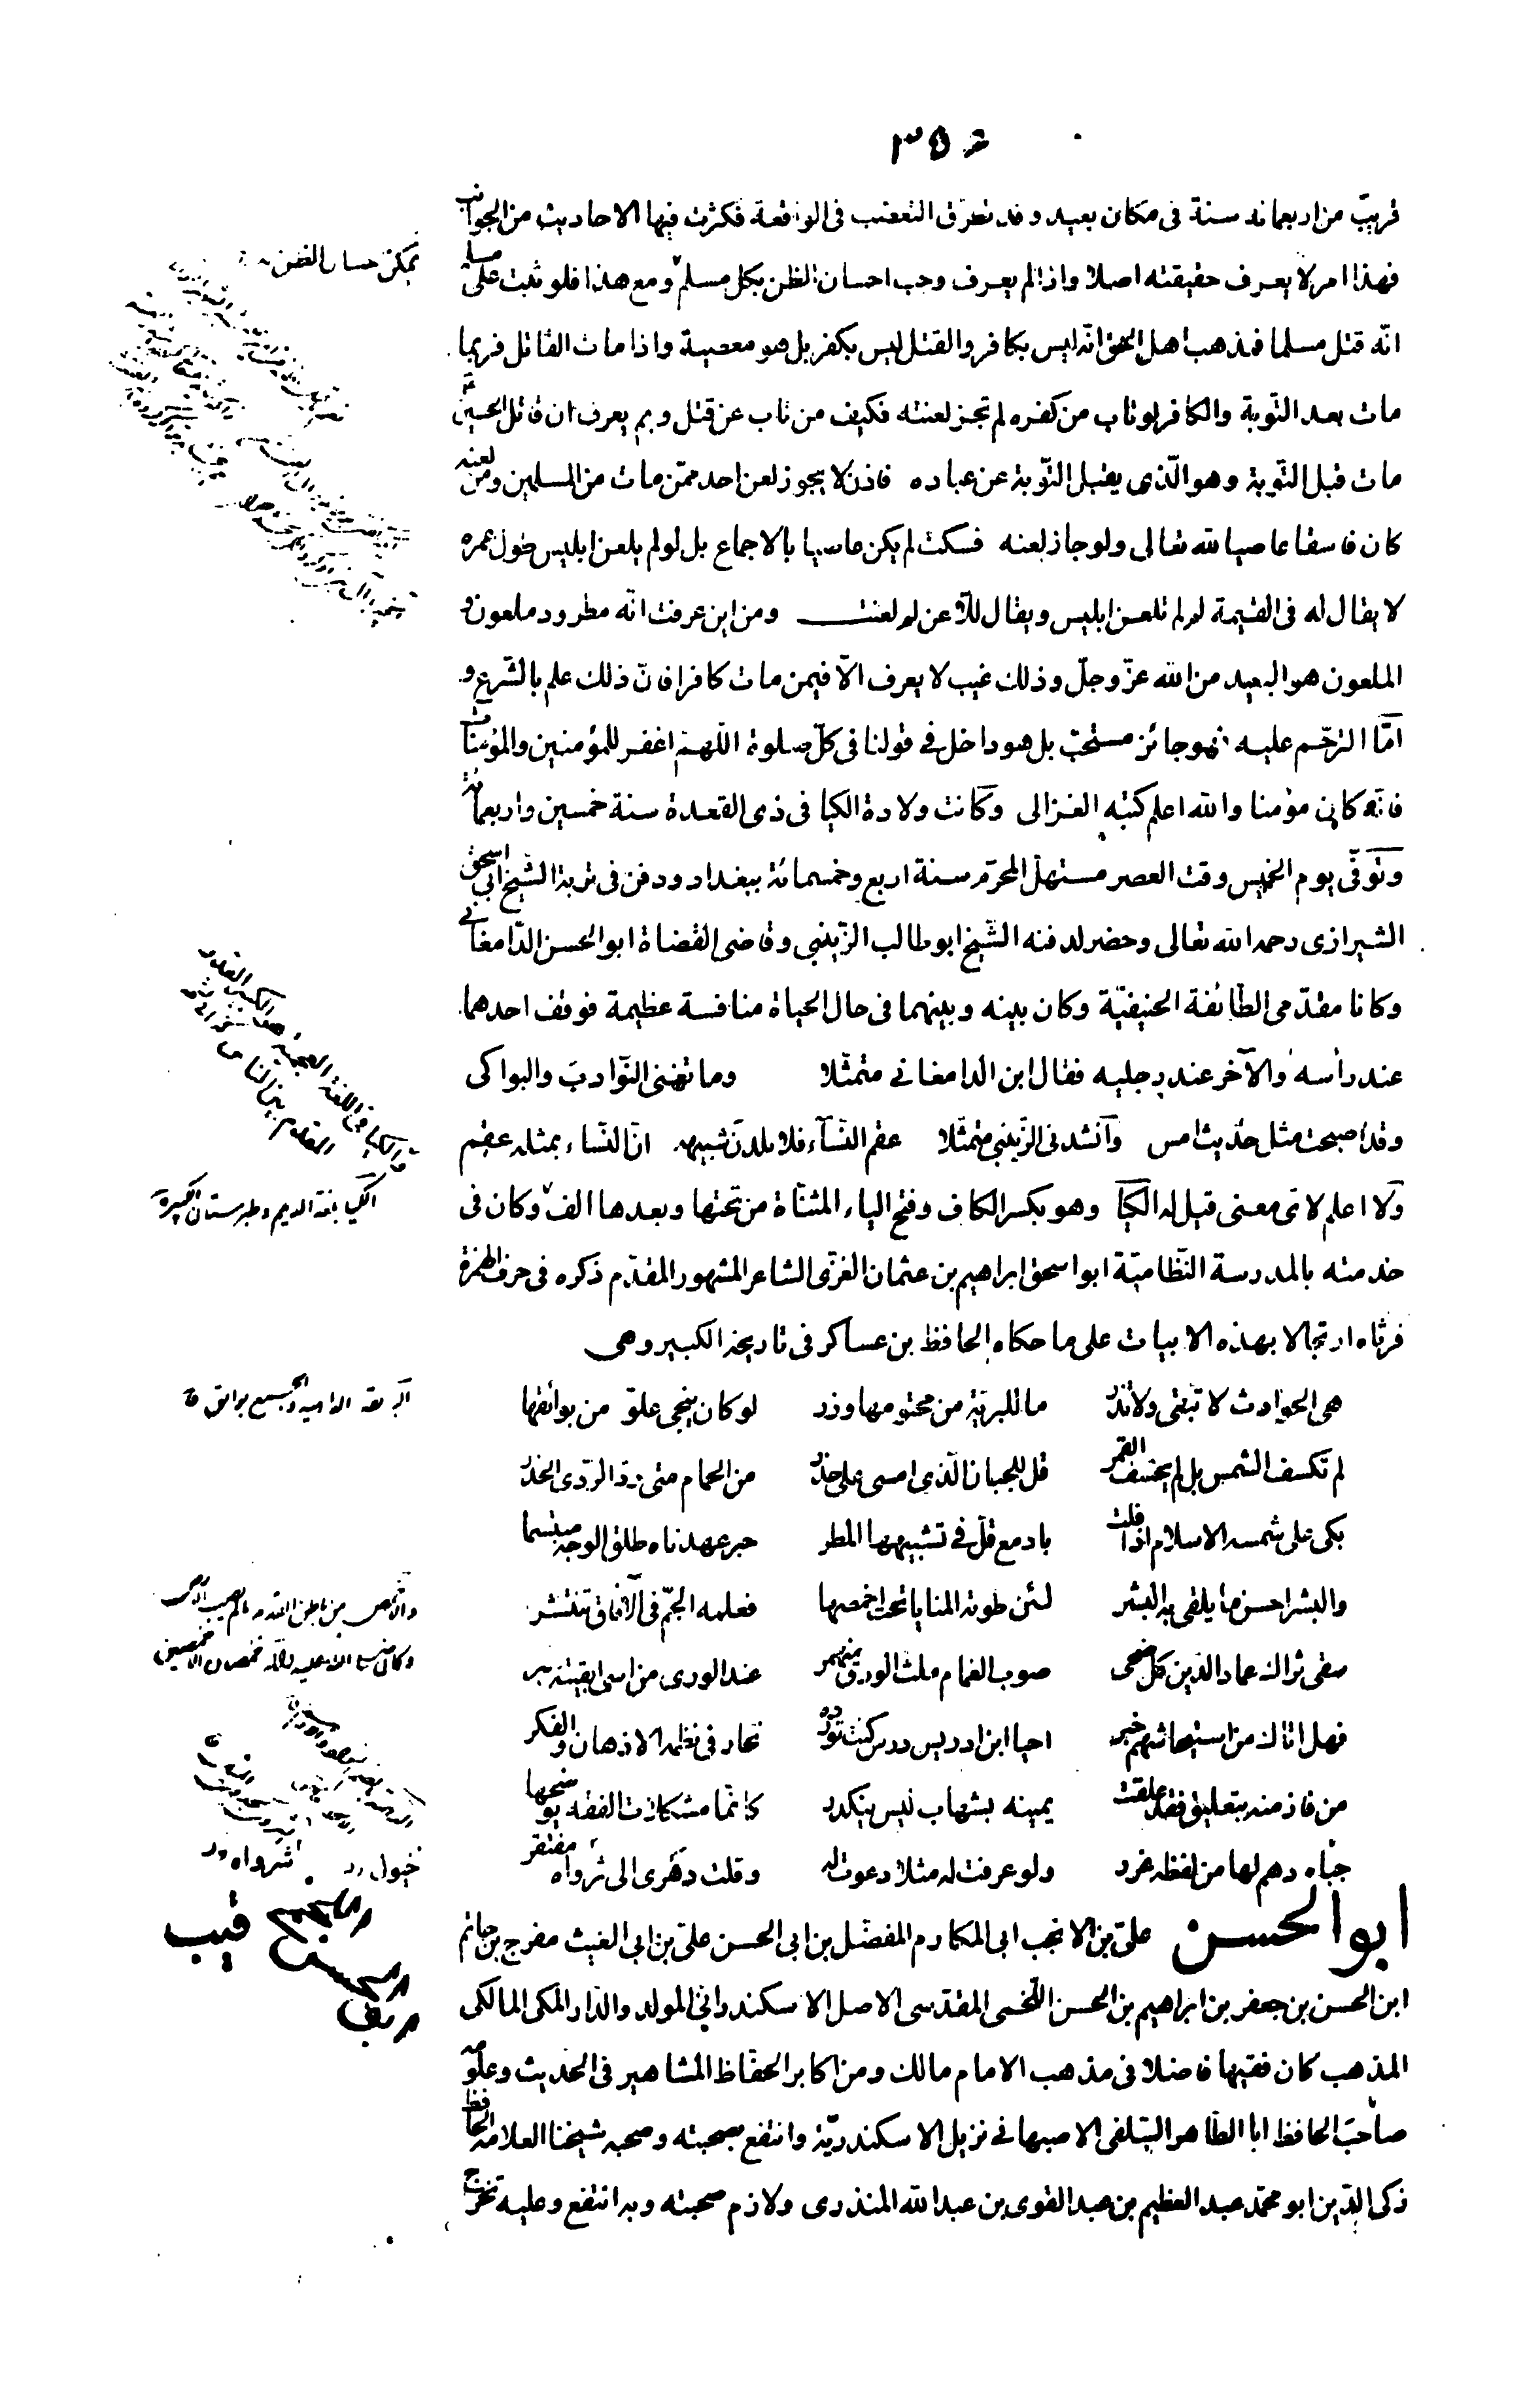 ٣٥٤
قريب من اربعمائة سنة فى مكان بعيد وقد تطرق التعصب فى الواقعة فكثرت فيها الاحاديث من الجوانب
فهذا امر لا يعرف حقيقته اصلا واذا لم يعرف وجب احسان الظن بكل مسلم ومع هذا فلو ثبت على مسلم
انّه قتل مسلما فمذهب اهل الحق انّه ليس بكافر والقتل ليس بكفر بل هو معصية واذا مات القاتل فربما
مات بعد التّوبة والكافر لو تاب من كفره لم تجز لعنته فكيف من تاب عن قتل وبم يعرف ان قاتل الحسين
مات قبل التّوبة وهو الّذى يقبل التّوبة عن عباده فاذن لا يجوز لعن احد ممّن مات من المسلمين ومن لعنه
كان فاسقا عاصيا لله تعالى ولو جاز لعنه فسكت لم يكن عاصيا بالاجماع بل لو لم يلعن ابليس طول عمره
لا يقال له فى القيمة لم لم تلعن ابليس ويقال للاّعن لم لعنت ومن اين عرفت انّه مطرود ملعون و
الملعون هو البعيد من الله عزّ وجلّ وذلك غيب لا يعرف الّا فيمن مات كافرا فانّ ذلك علم بالشّرع و
امّا التّرحّم عليه فهو جائز مستحبّ بل هو داخل فى قولنا فى كلّ صلوة اللّهمّ اغفر للمؤمنين والمؤمنات
فانّه كان مؤمنا والله اعلم كتبه الغزالى وكانت ولادة الكيا فى ذى القعدة سنة خمسين واربعمائة
وتوفّى يوم الخميس وقت العصر مستهلّ المحرّم سنة اربع وخمسمائة ببغداد ودفن فى تربة الشّيخ ابى اسحق
الشيرازى رحمه الله تعالى وحضر لدفنه الشّيخ ابو طالب الزّينبي وقاضى القضاة ابو الحسن الدّامغانى
وكانا مقدّمى الطّائفة الحنيفيّة وكان بينه وبينهما فى حال الحياة منافسة عظيمة فوقف احدهما
عند رأسه والآخر عند رجليه فقال ابن الدامغانى متمثّلا وما تغنى النّوادب والبواكى
وقد اصبحت مثل حديث امس وانشد فى الزّينبي متمثّلا عقم النّسآء فلا يلدن شبيهه انّ النّساء بمثله عقم
ولا اعلم لاىّ معنى قيل له الكيا وهو بكسر الكاف وفتح الياء المثنّاة من تحتها وبعدها الف وكان فى
خدمته بالمدرسة النّظاميّة ابو اسحق ابراهيم بن عثمان الغزّى الشاعر المشهور المقدّم ذكره فى حرف الهمزة
فرثاه ارتجالا بهذه الابيات على ما حكاه الحافظ بن عساكر فى تاريخه الكبير وهى
هى الحوادث لا تبقى ولا تذر ما للبريّة من محتومها وزر لو كان ينجى علوّ من بوائقها
لم تكسف الشمس بل لم يخسف القمر قل للجبان الّذى امسى على حذر من الحمام متى ردّ الرّدى الحذر
بكى على شمسه الاسلام اذ افلت بادمع قلّ فى تشبيهها المطر حبر عهدناه طلق الوجه مبتسما
والبشر احسن ما يلقى به البشر لئن طوته المنايا تحت اخمصها فعلمه الجمّ فى الآفاق تنتشر
سقى ثراك عماد الدّين كل ضحى صوب الغمام ملث الودق منهمر عند الورى من اسى ابقيته
فهل اتاك من استيحاشهم خبر احيا ابن ادريس درس كنت تورده تحار فى نظمه الاذهان والفكر
من فاز منه بتعليق فقد علقت يمينه بشهاب ليس ينكدر كانّما مشكلات الفقه يوضحها
جباه دهم لها من لفظه غرر ولو عرفت له مثلا دعوت له وقلت دهرى الى شرواه مفتقر
ابو الحسن علىّ بن الانجب ابى المكارم المفضّل بن ابى الحسن علىّ بن ابى الغيث مفرج بن حاتم
ابن الحسن بن جعفر بن ابراهيم بن الحسن اللّخمى المقدسى الاصل الاسكندرانىّ المولد والدّار المكى المالكى
المذهب كان فقيها فاضلا فى مذهب الامام مالك ومن اكابر الحفّاظ المشاهير فى الحديث وعلومه
صاحب الحافظ ابا الطّاهر السّلفى الاصبهانى نزيل الاسكندريّة وانتفع بصحبته وصحبه شيخنا العلامة الحافظ
زكى الدّين ابو محمّد عبد العظيم بن عبد القوى بن عبد الله المنذرى ولازم صحبته وبه انتفع وعليه تخرّج
الكيا بلغة الديلم وطبرستان الكبير